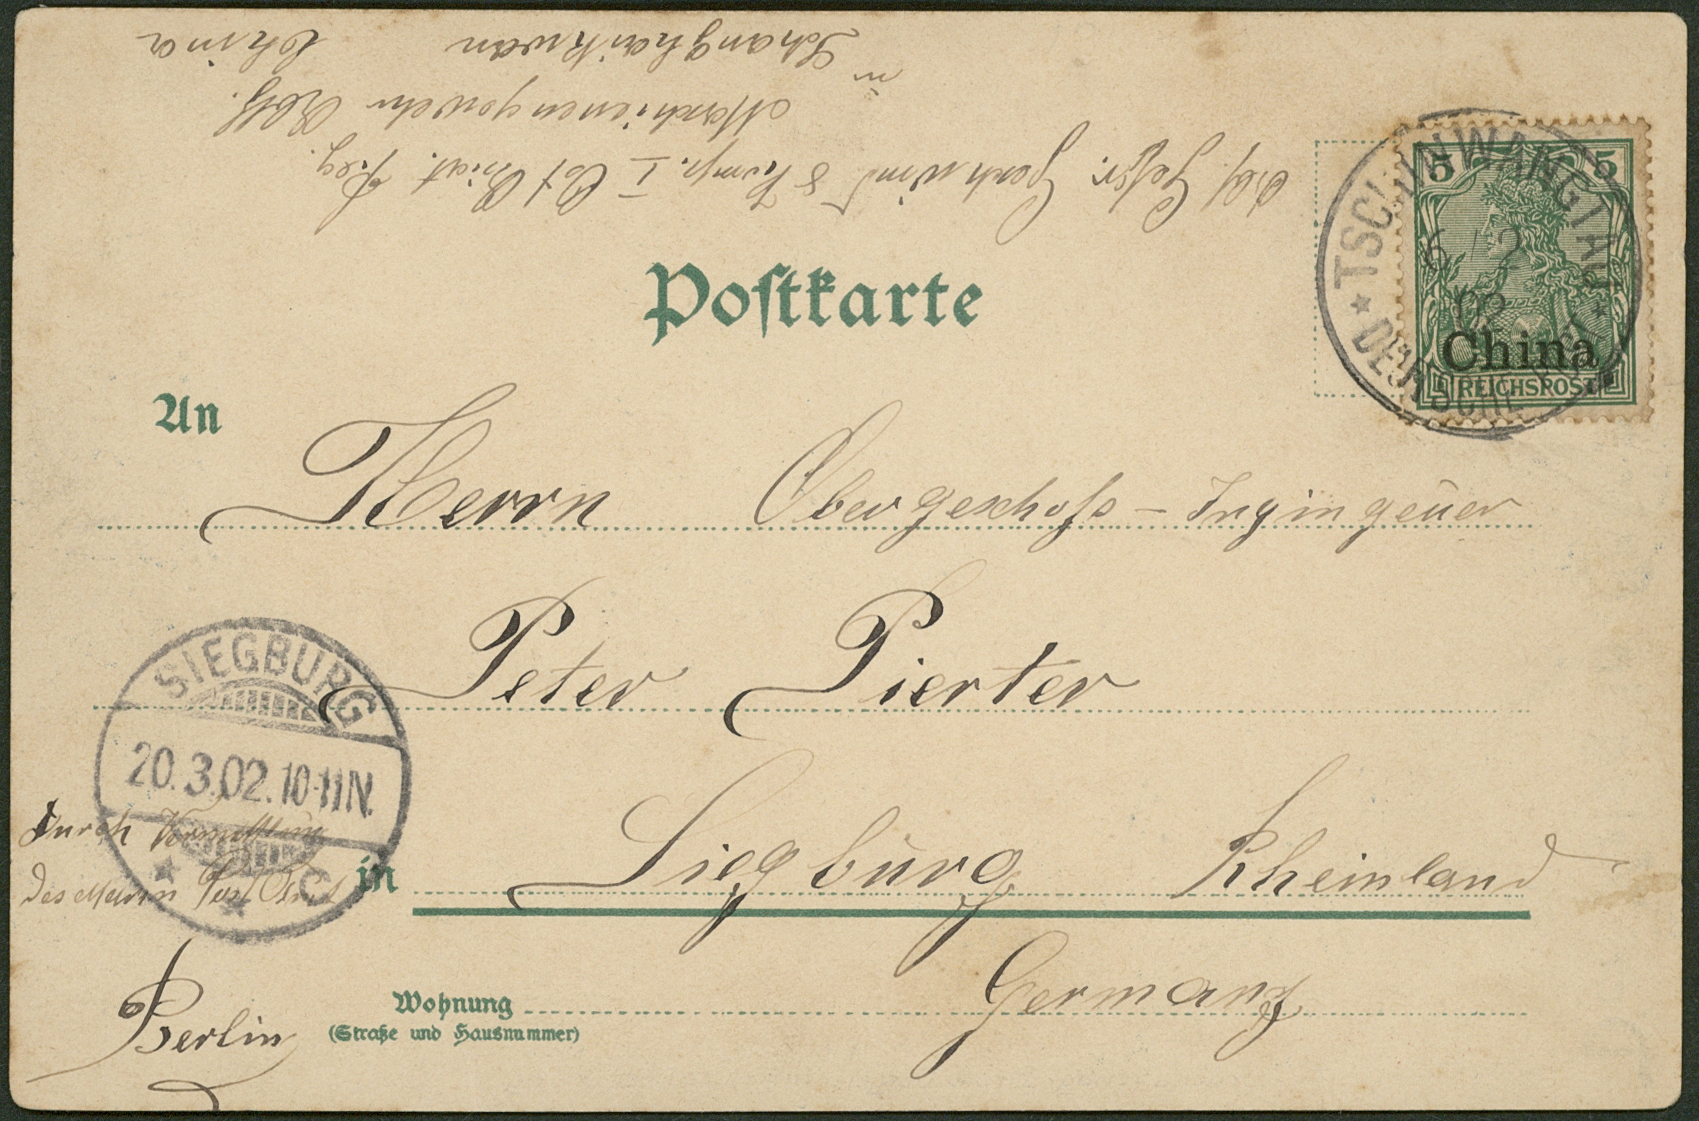 Abs. Gefr. Geshwind 8 Komp. I Ost Asiat. Reg.
Maschienengewehr Abtlg.
in Schanghaikwan China
5 5
China
REICHSPOST
TSCHINWANGTAU
6/2
02
DEUTSCHE POST
Postkarte
An
Herrn Obergeschoſs - Ingingeuer
Peter Pierter
SIEGBURG
20.3.02.10-11N.
* * C
durch Vermittlung
des Marin Post Bür's
in Siegburg Rheinland
Berlin
Wohnung Germany
(Straße und Hausnummer)